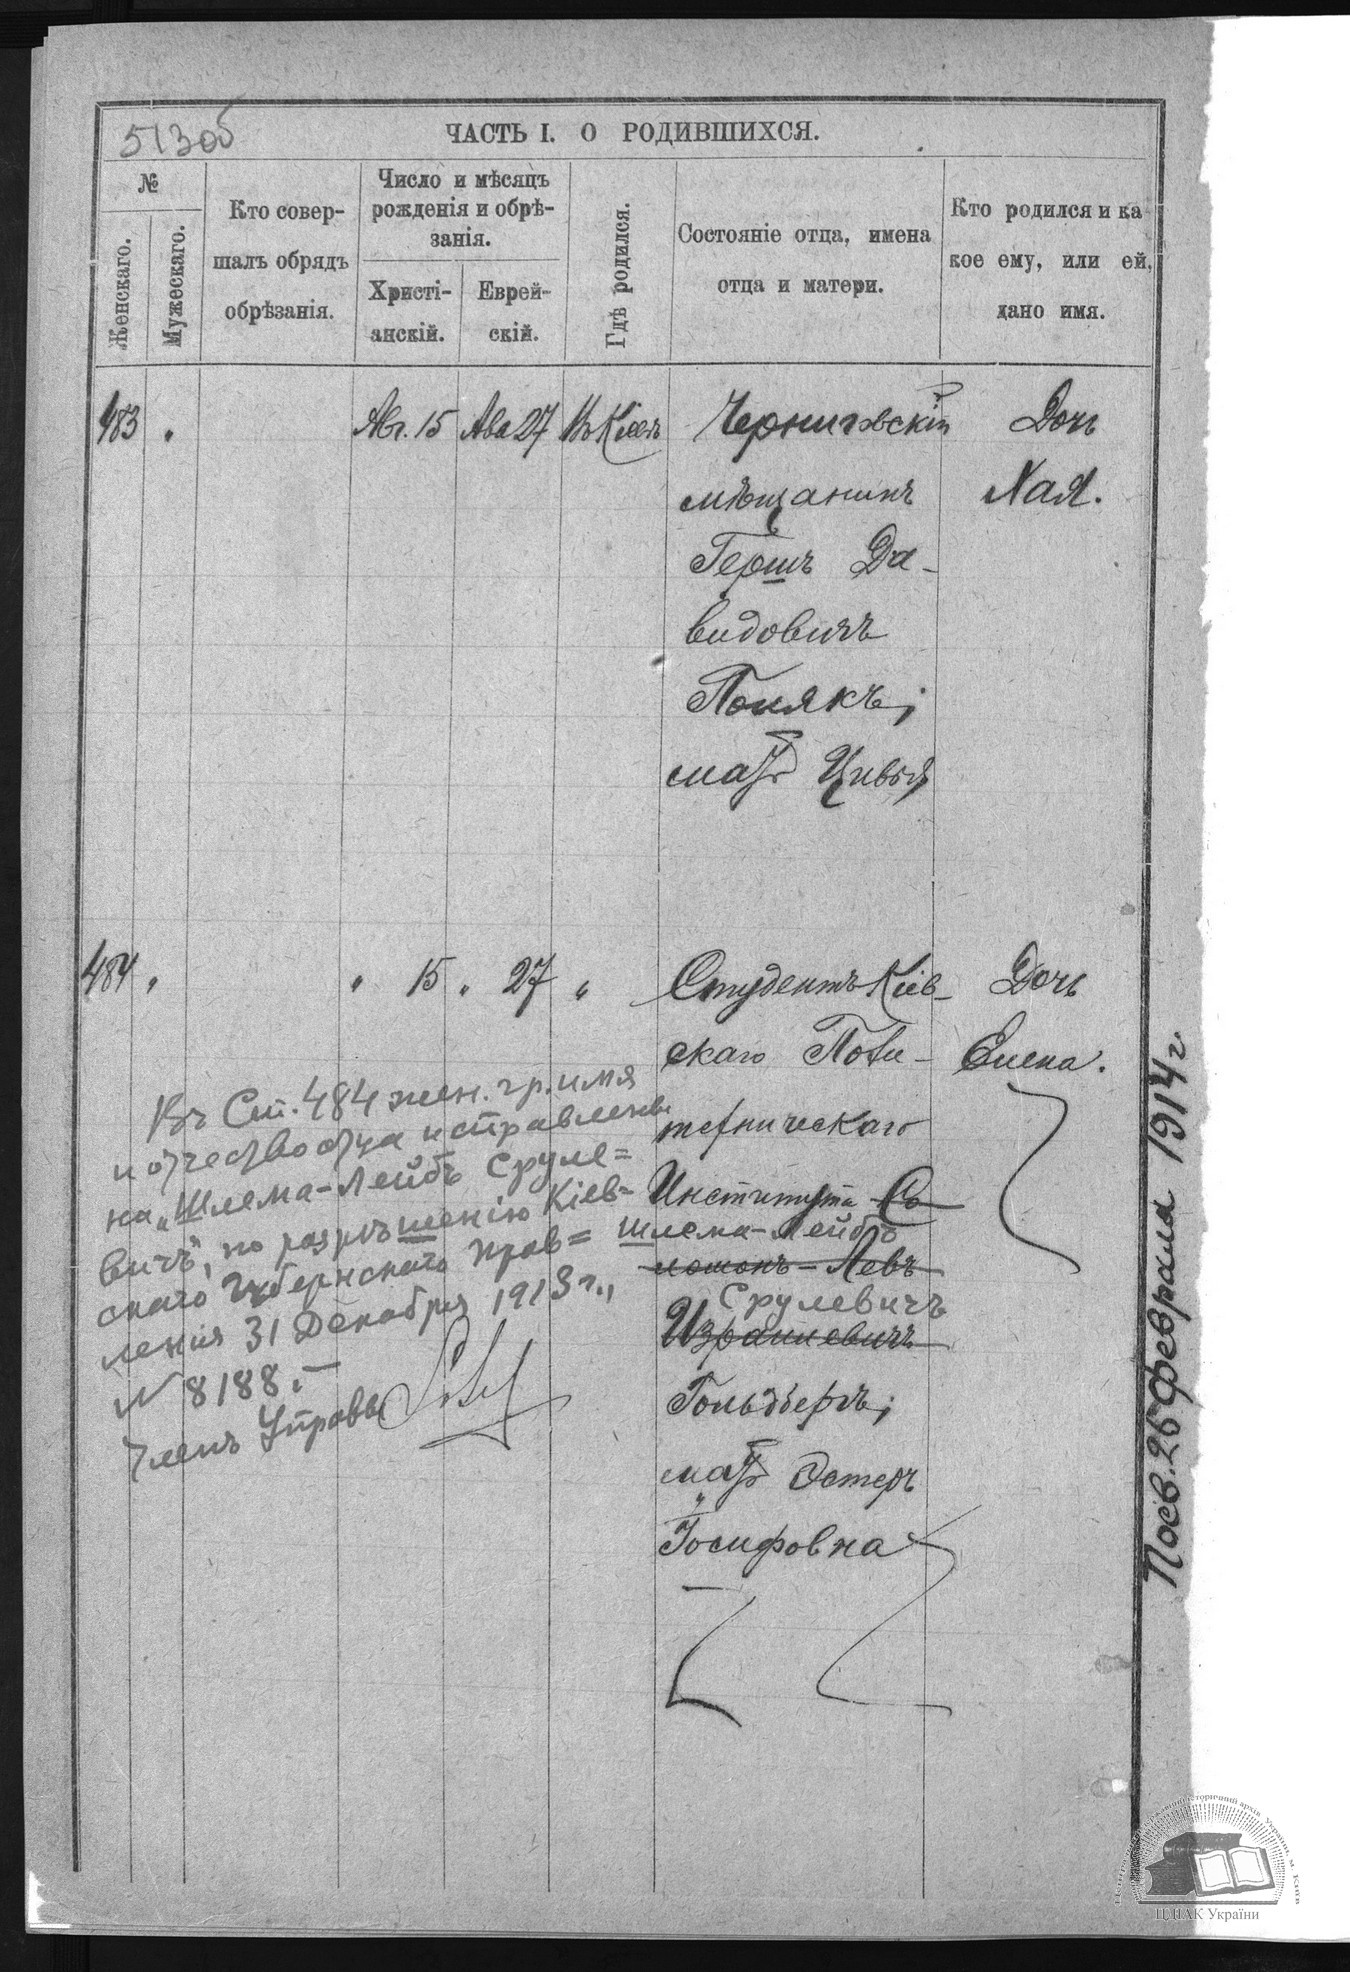 513об
ЧАСТЬ I. О РОДИВШИХСЯ.
№
Женскаго.
Мужескаго.
Кто совер-
шалъ обрядъ
обрѣзанія.
Число и мѣсяцъ
рожденія и обрѣ-
занія.
Христі-
анскій.
Еврей-
скій.
Гдѣ родился.
Состояніе отца, имена
отца и матери.
Кто родился и ка
кое ему, или ей,
дано имя.
483 " Авг. 15 Ава 27 Въ Кіевѣ Черниговскій Дочь
мѣщанинъ Хая.
Гершъ Да-
видовичъ
Полякъ;
мать Цивья
484 " " 15 " 27 " Студентъ Кіев- Дочь
скаго Поли- Елена.
техническаго
Института Со-
Шлема-Лейбъ
ломонъ-Левъ
Срулевичъ
Израилевичъ
Гольдбергъ;
мать Эстеръ
Іосифовна
Въ Ст. 484 жен. гр. имя
и отчество отца исправлены
на „Шлема-Лейбъ Сруле=
вичъ", по разрѣшенію Кіев=
скаго Губернскаго Прав=
ленія 31 Декабря 1913 г.,
№ 8188.-
Членъ Управы
Посв. 25 Февраля 1914 г.
ЦДІАК України